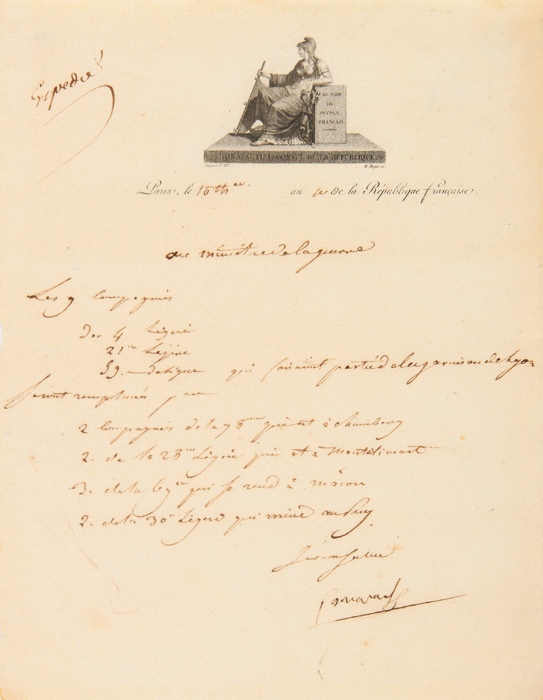 Expedié
AU NOM
DU
PEUPLE
FRANÇAIS
BONAPARTE 1er CONSUL DE LA RÉPUBLIQUE
Paris, le 15 th an de la République française.
au ministre de la guerre
Les 9 compagnies
des 4 Légère
21me Légère
59 qui faisaient partie de la garnison de Lyon
seront remplacées par
2 compagnies de la 78me qui est à chambery
2. de la 28me Légère qui est à Montélimart
3. de la 69me qui se rend à macon
2. de la 30e Légère qui au Puy
Je vous salue
Bonaparte